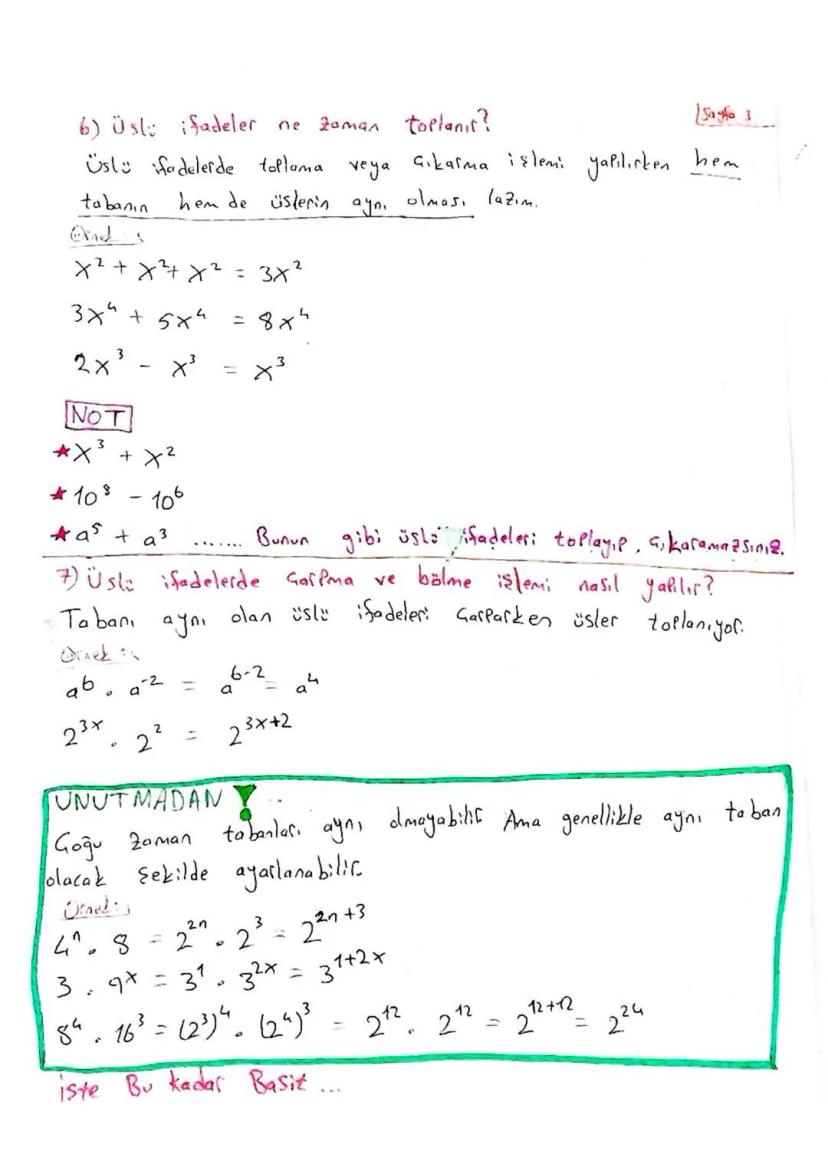 Sayfa 3
6) Üslü ifadeler ne zaman toplanır?
Üslü ifadelerde toplama veya çıkarma işlemi yapılırken hem
tabanın hem de üslerin aynı olması lazım.
Örnek:
x² + x² + x² = 3x²
3x⁴ + 5x⁴ = 8x⁴
2x³ - x³ = x³
NOT
★ x³ + x²
★ 10⁸ - 10⁶
★ a⁵ + a³ ....... Bunun gibi üslü ifadeleri toplayıp, çıkaramazsınız.
7) Üslü ifadelerde çarpma ve bölme işlemi nasıl yapılır?
Tabanı aynı olan üslü ifadeleri çarparken üsler toplanıyor.
Örnek:
a⁶ . a⁻² = a⁶⁻² = a⁴
2³ˣ . 2² = 2³ˣ⁺²
UNUTMADAN !
Çoğu zaman tabanları aynı olmayabilir Ama genellikle aynı taban
olacak şekilde ayarlanabilir.
Örnek:
4ⁿ . 8 = 2²ⁿ . 2³ = 2²ⁿ⁺³
3 . 9ˣ = 3¹ . 3²ˣ = 3¹⁺²ˣ
8⁴ . 16³ = (2³)⁴ . (2⁴)³ = 2¹² . 2¹² = 2¹²⁺¹² = 2²⁴
işte Bu kadar Basit ...